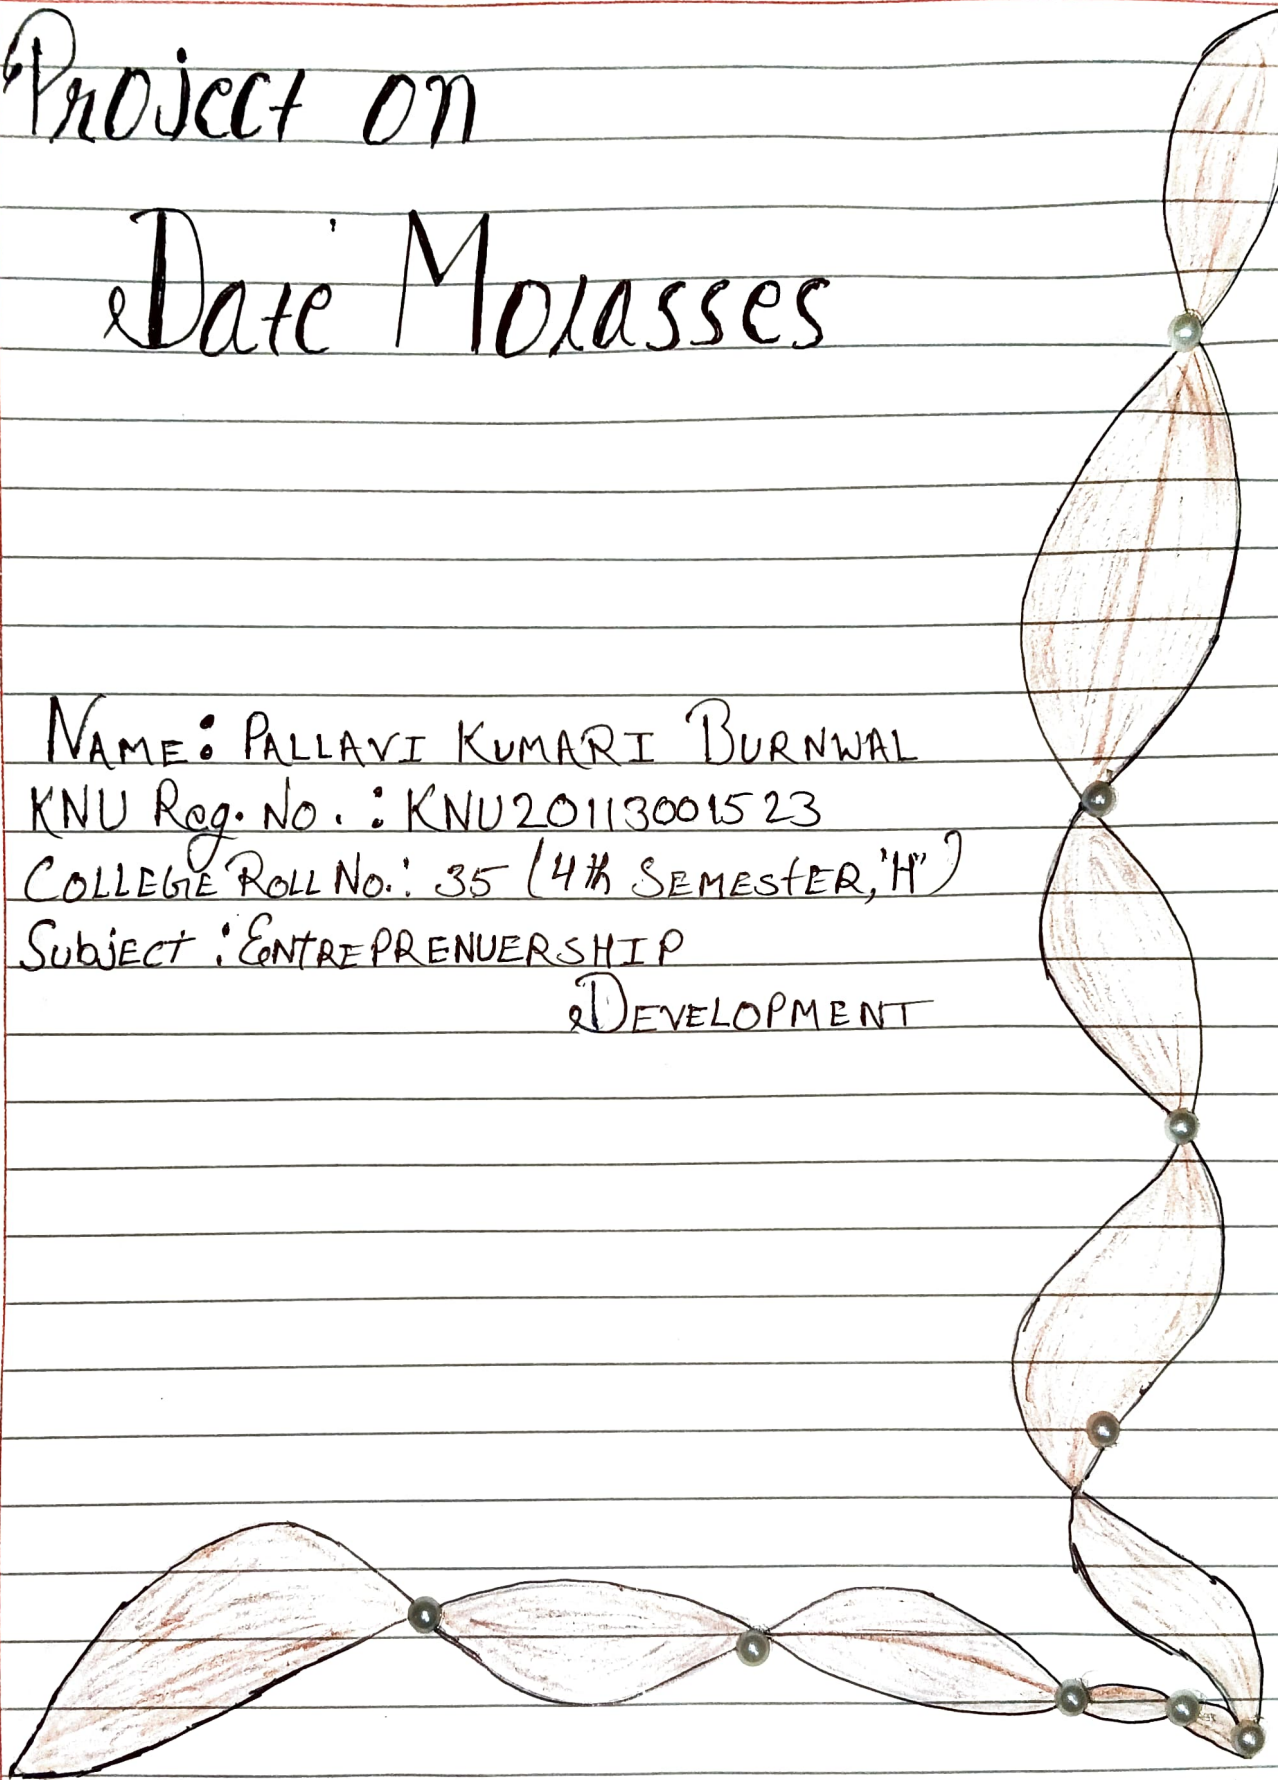 Project on
Date Molasses
NAME: PALLAVI KUMARI BURNWAL
KNU Reg. No. : KNU20113001523
COLLEGE ROLL No.: 35 (4th SEMESTER, "H")
Subject : ENTREPRENUERSHIP
DEVELOPMENT